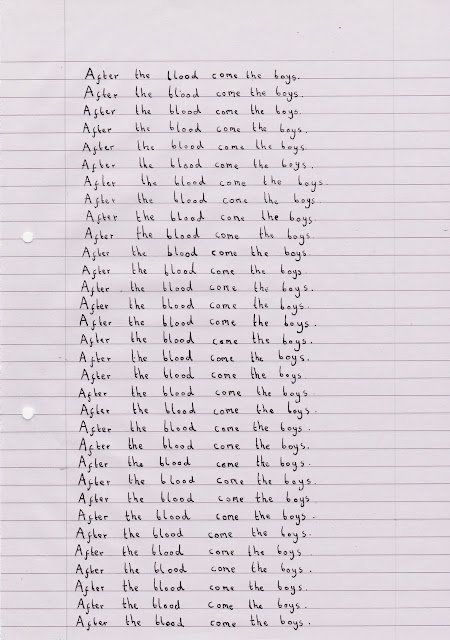 After the blood come the boys.
After the blood come the boys.
After the blood come the boys.
After the blood come the boys.
After the blood come the boys.
After the blood come the boys.
After the blood come the boys.
After the blood come the boys.
After the blood come the boys.
After the blood come the boys.
After the blood come the boys.
After the blood come the boys.
After the blood come the boys.
After the blood come the boys.
After the blood come the boys.
After the blood come the boys.
After the blood come the boys.
After the blood come the boys.
After the blood come the boys.
After the blood come the boys.
After the blood come the boys.
After the blood come the boys.
After the blood come the boys.
After the blood come the boys.
After the blood come the boys.
After the blood come the boys.
After the blood come the boys.
After the blood come the boys.
After the blood come the boys.
After the blood come the boys.
After the blood come the boys.
After the blood come the boys.